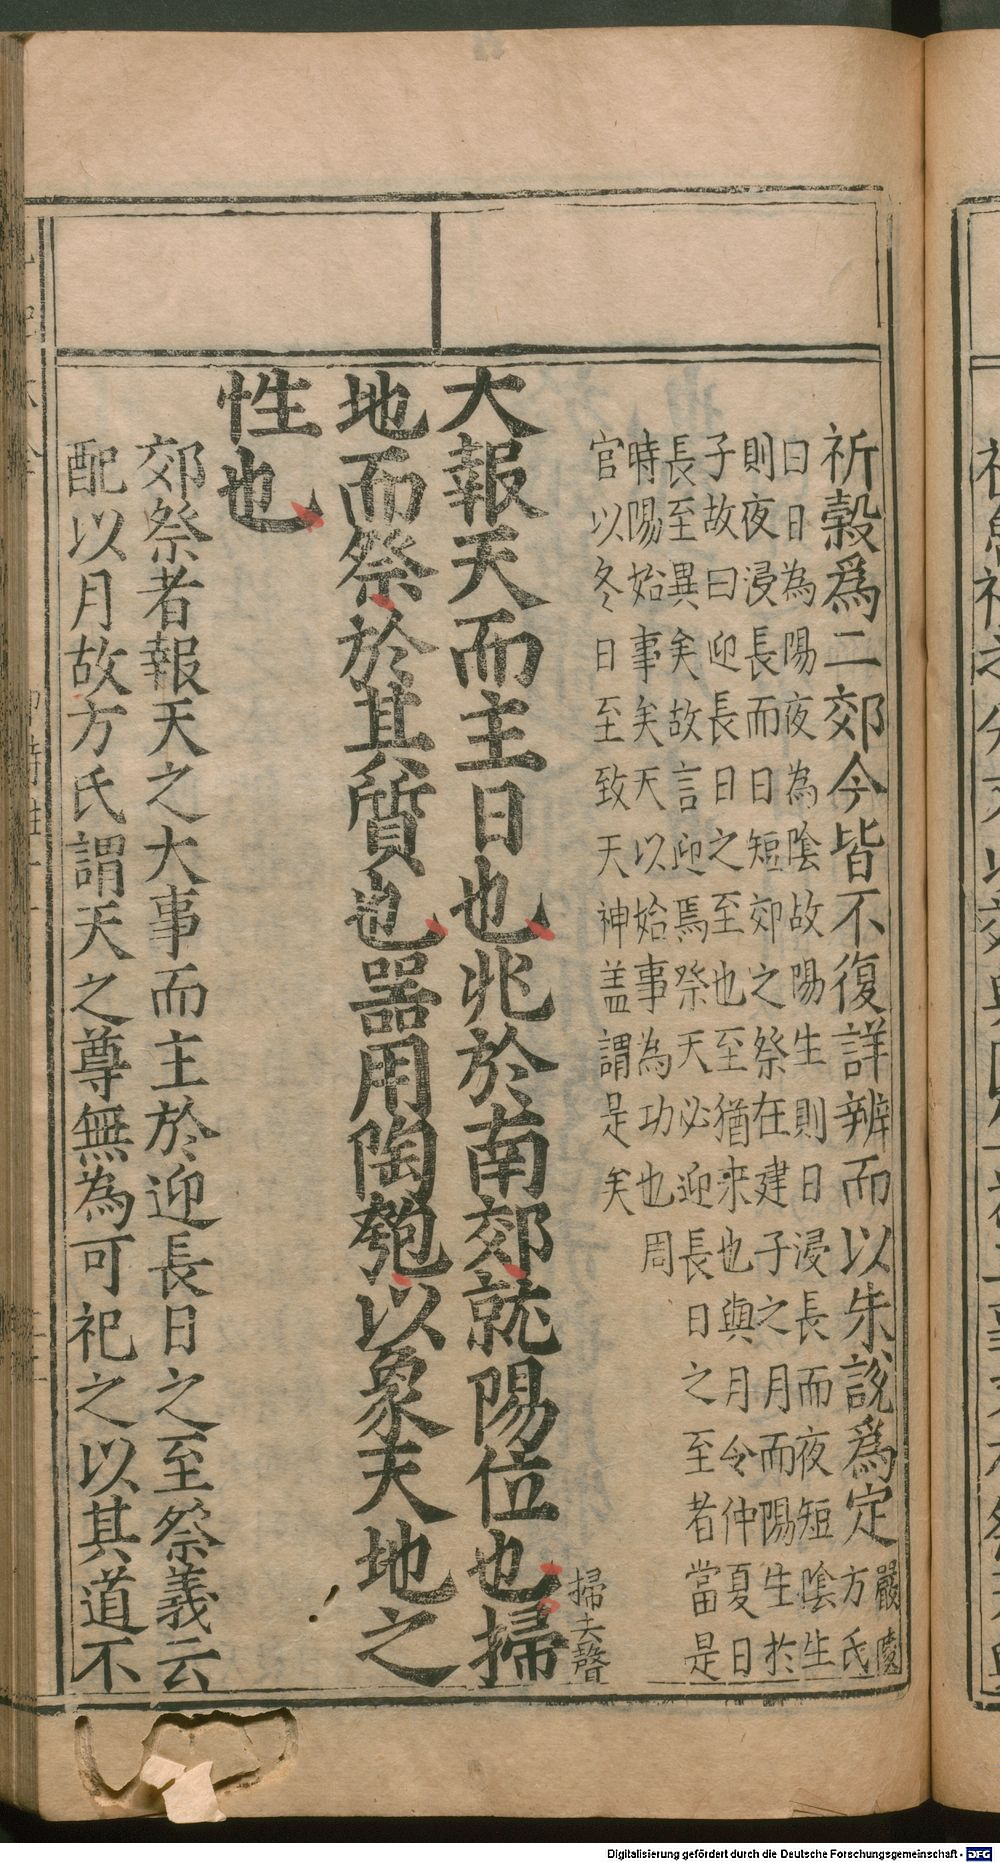 祈穀爲二郊今皆不復詳辨而以朱說爲定嚴陵方氏
曰日為陽夜為陰故陽生則日浸長而夜短陰生
則夜浸長而日短郊之祭在建子之月而陽生於
子故曰迎長日之至也至猶来也與月令仲夏日
長至異矣故言迎焉祭天必迎長日之至者當是
時陽始事矣天以始事為功也周
官以冬日至致天神盖謂是矣
大報天而主日也兆於南郊就陽位也掃
掃去聲
地而祭於其質也器用陶匏以象天地之
性也
郊祭者報天之大事而主於迎長日之至祭義云
配以月故方氏謂天之尊無為可祀之以其道不
Digitalisierung gefördert durch die Deutsche Forschungsgemeinschaft - DFG